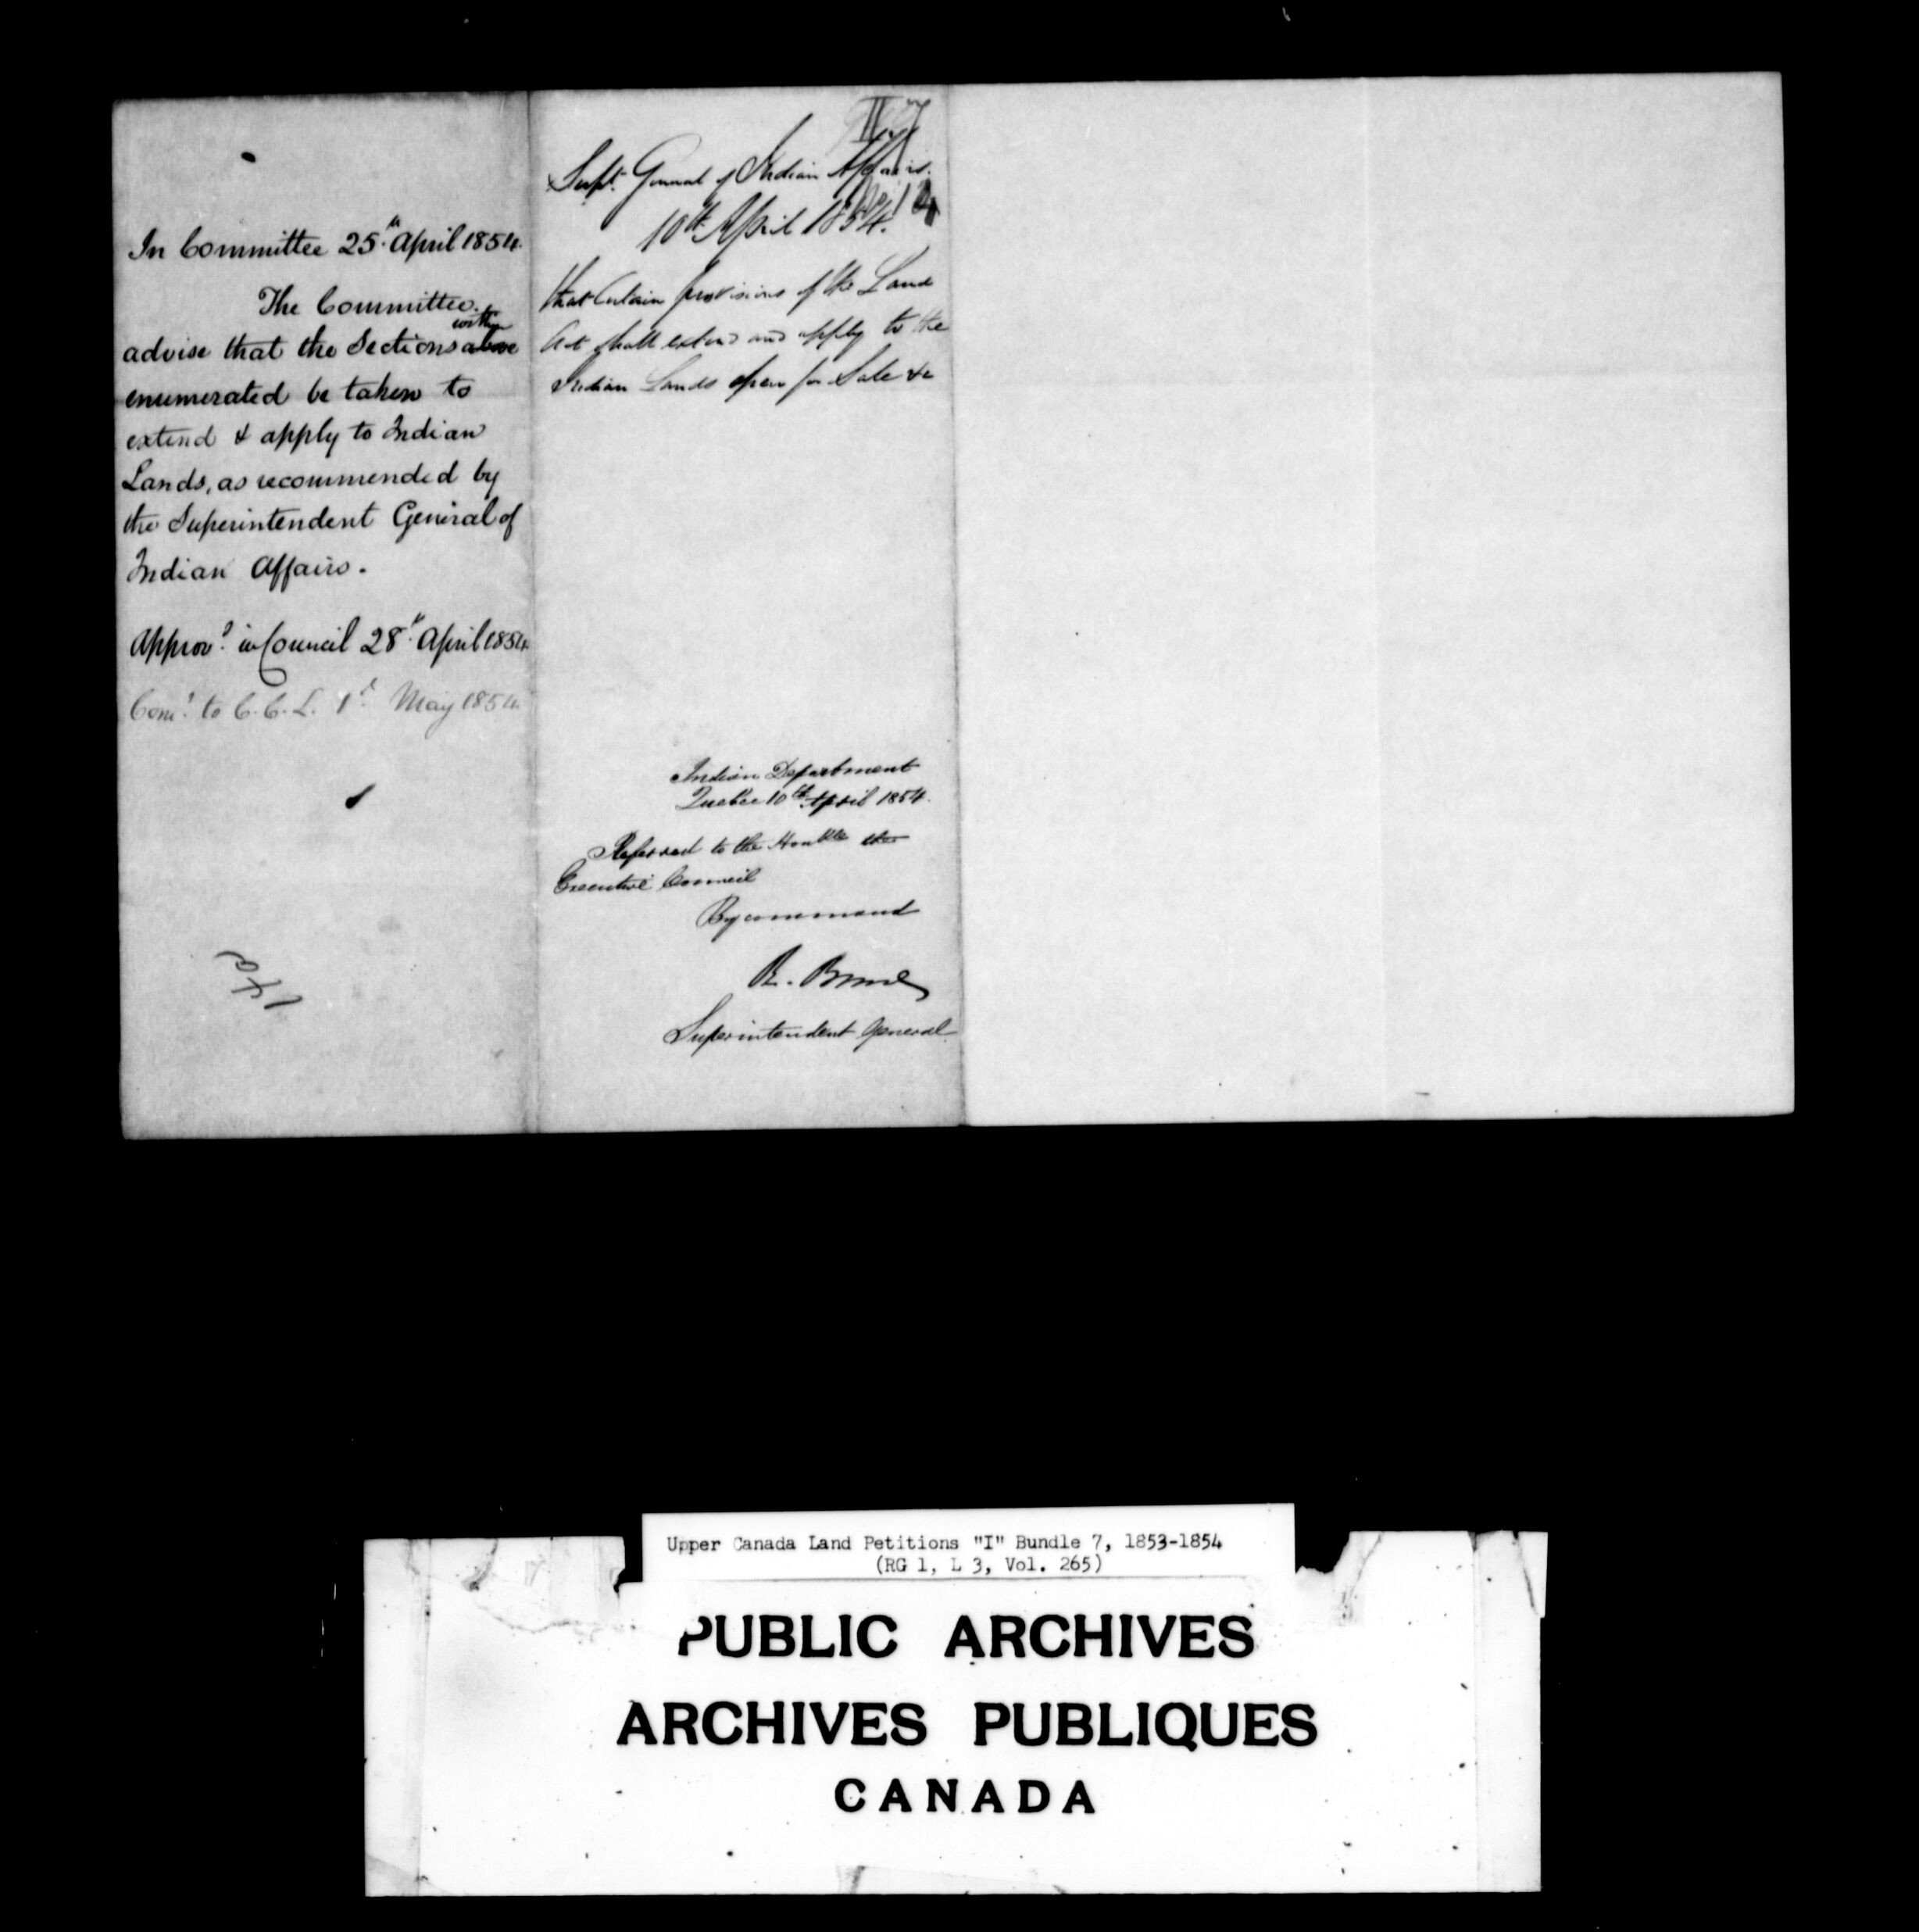 In Committee 25th April 1854.
The Committee
within
advise that the Sections above
enumerated be taken to
extend & apply to Indian
Lands, as recommended by
the Superintendent General of
Indian Affairs.
Approvd in Council 28th April 1854
Comd to C.C.L. 1st May 1854.
Supt. General of Indian Affairs.
10th April 1854.
that Certain provisions of the Land
Act shall extend and apply to the
Indian Lands open for Sale &c
Indian Department
Quebec 10th April 1854.
Referred to the Honble the
Executive Council
By command
R. Bruce
Superintendent General
Upper Canada Land Petitions "I" Bundle 7, 1853-1854
(RG 1, L 3, Vol. 265)
PUBLIC ARCHIVES
ARCHIVES PUBLIQUES
CANADA